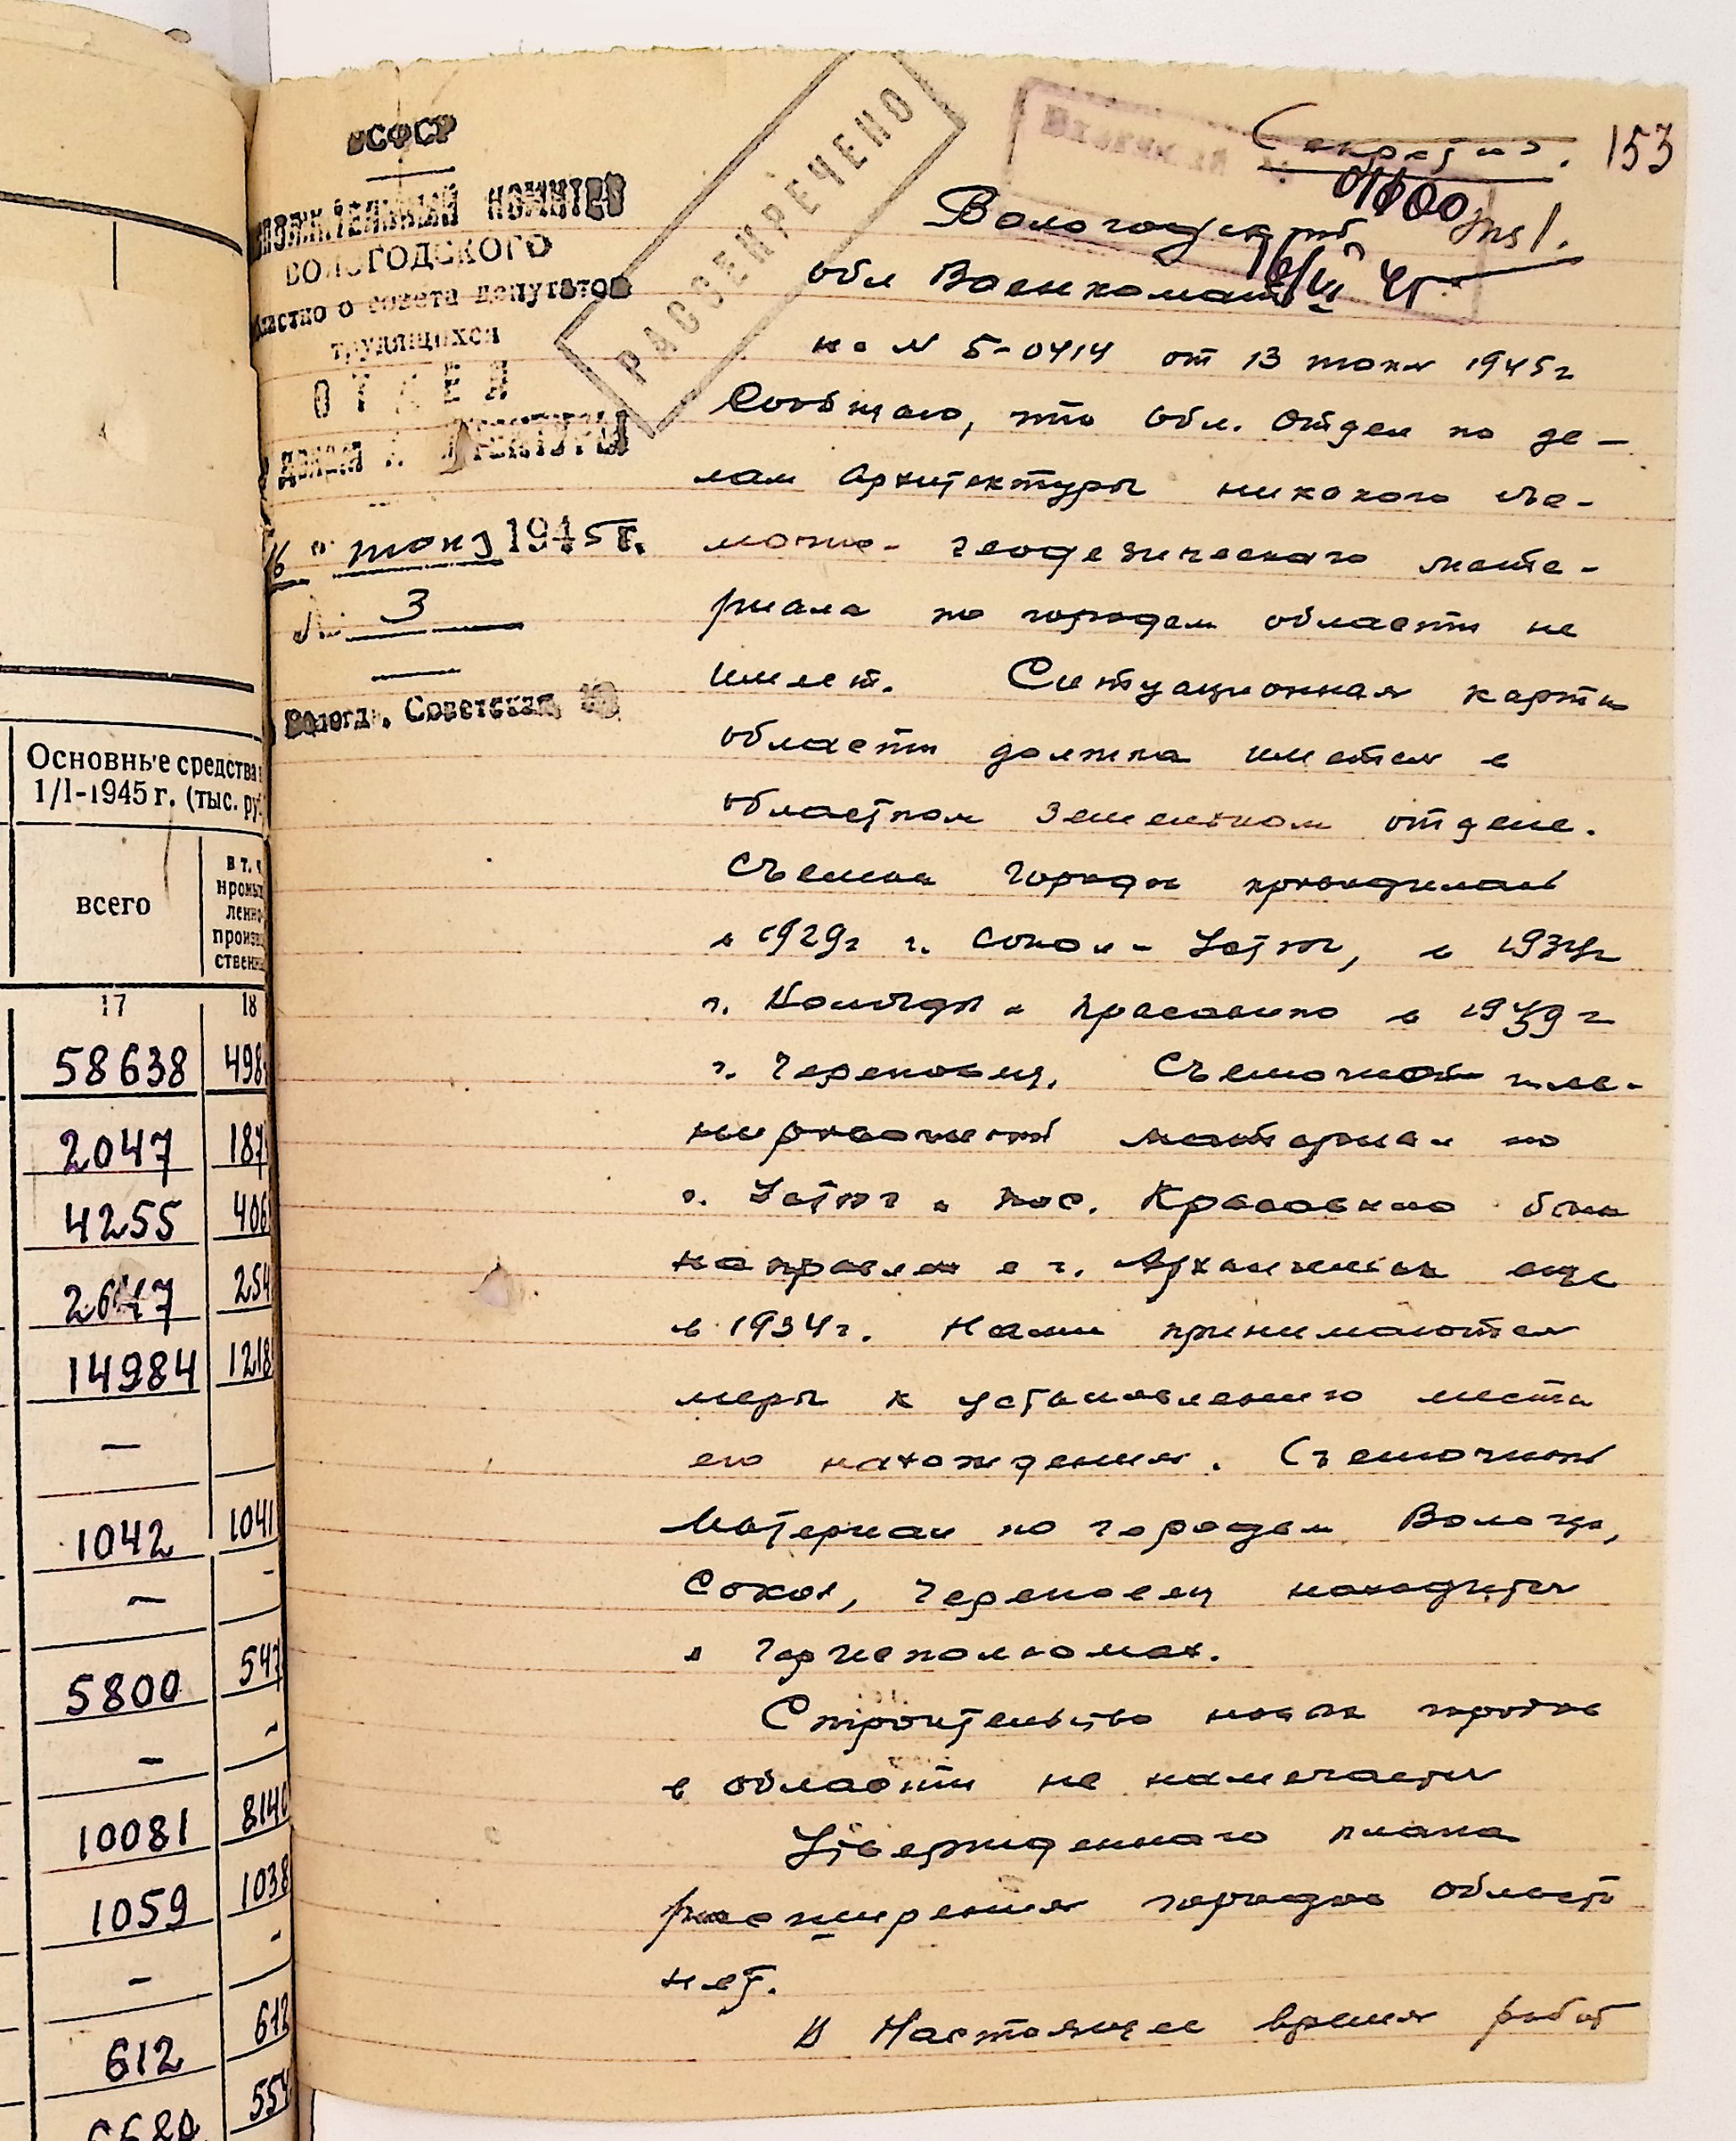 Основные средства
1/I-1945 г. (тыс. ру
всего
в т. ч.
ленно-
произв
ственн
17 18
58638 498
2047 187
4255 406
2647 254
14984 1218
—
1042 1041
— -
5800 547
— -
10081 8140
1059 1038
— -
612 612
554
РСФСР
ИСПОЛНИТЕЛЬНЫЙ КОМИТЕТ
ВОЛОГОДСКОГО
областного совета депутатов
трудящихся
ОТДЕЛ
по делам АРХИТЕКТУРЫ
16 " июня 1945 г.
№ 3
Вологда, Советская
РАССЕКРЕЧЕНО
Секретно. 153
Вологодский
обл Военкомат
на № Б-0414 от 13 июня 1945г
Сообщаю, что Обл. Отдел по де-
лам Архитектуры никакого съе-
мочно-геодезического мате-
риала по городам области не
имеет. Ситуационная карта
области должна иметься в
областном земельном отделе.
Съемка городов проводилась
в 1929г г. Сокол - Устюг, в 1934г
г. Вологды и Красавино в 1939 г
г. Череповец. Съемочный пла-
нировочный материал по
г. Устюг и пос. Красавино был
направлен в г. Архангельск еще
в 1934г. Нами принимаются
меры к установлению места
его нахождения. Съемочный
материал по городам Вологда,
Сокол, Череповец находится
в Горисполкомах.
Строительство новых городов
в области не намечается
Утвержденного плана
расширения городов области
нет.
В настоящее время работ